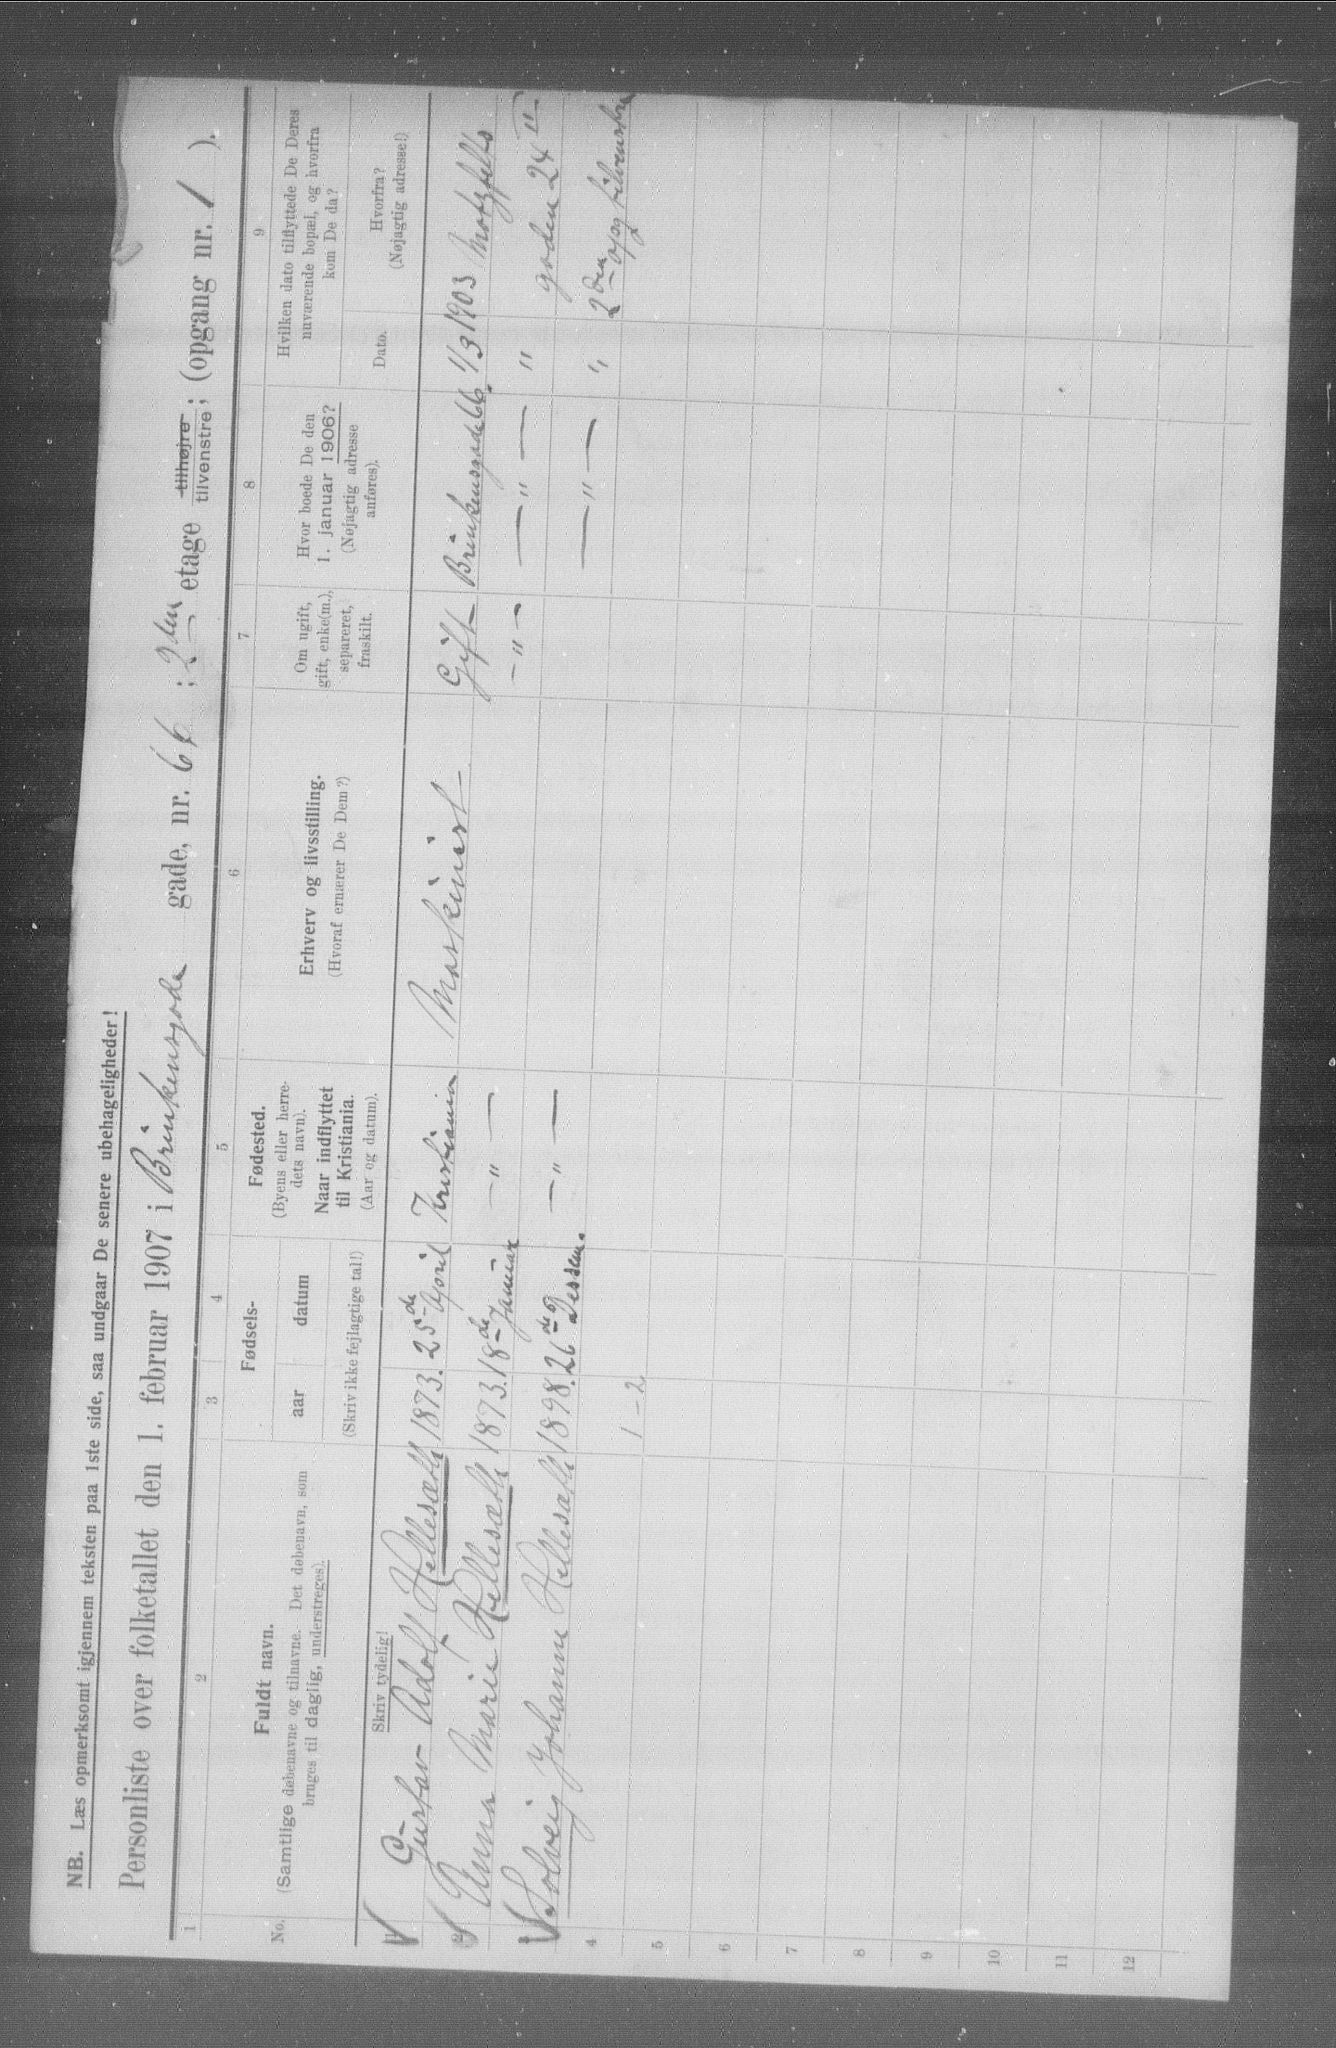 NB. Læs opmerksomt igjennem teksten paa 1ste side, saa undgaar De senere ubehageligheder!
Personliste over folketallet den 1. februar 1907 i Brinkensgade gade, nr. 66 ; 2den etage tilhøjre tilvenstre ; (opgang nr. 1 ).
1 2 3 4 5 6 7 8 9
No.
Fuldt navn.
(Samtlige døbenavne og tilnavne. Det døbenavn, som
bruges til daglig, understreges).
Skriv tydelig!
Fødsels-
aar datum
(Skriv ikke fejlagtige tal!)
Fødested.
(Byens eller herre-
dets navn).
Naar indflyttet
til Kristiania.
(Aar og datum).
Erhverv og livsstilling.
(Hvoraf ernærer De Dem?)
Om ugift,
gift, enke(m.),
separeret,
fraskilt.
Hvor boede De den
1. januar 1906?
(Nøjagtig adresse
anføres).
Hvilken dato tilflyttede De Deres
nuværende bopæl, og hvorfra
kom De da?
Dato.
Hvorfra?
(Nøjagtig adresse!)
1 Gustav Adolf Hellesæth 1873. 25de April Kristiania Maskinist Gift Brinkensgade 66. 1/3 1903 Motzfelts
2 Anna Marie Hellesæth 1873. 18de Januar — " — — " — — " — " gaden 24 II
Solveig Johanne Hellesæth 1898. 26de Dessem. — " — — " — " 2den opg tilvenstre
4
1 - 2
5
6
7
8
9
10
11
12